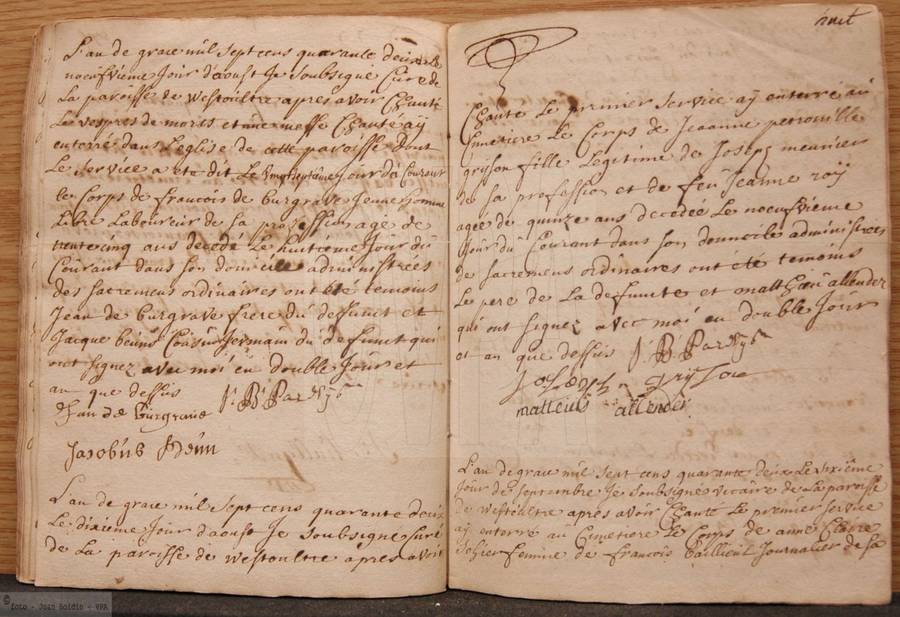 L'an de grace mil sept cens quarante deux Le
noeufvieme Jour d'aoust Je soubsigné Curé de
La paroisse de Westoultre apres avoir Chanté
Les vespres de morts et une messe Chanté aÿ
enterré dans L'eglise de cette paroisse dont
Le service a eté dit Le Jour du Courant
le Corps de francois de Burgrave Jeune homme
Libre Laboureur de sa profession agé de
trente cinq ans decedé Le huitieme Jour du
Courant dans son domicile administrées
des sacremens ordinaires ont été temoins
Jean de Burgrave frere du deffunct et
Jacque benun Cousin Germain du defunct qui
ont signez avec moi en double Jour et
an que dessus
Jan de Burgrave
Jacobus Benun
L'an de grace mil sept cens quarante deux
Le dixieme Jour d'aoust Je soubsigné Curé
de La paroisse de Westoultre apres avoir
huit
Chanté Le premier service aÿ enterré au
Cimetiere Le Corps de Jeanne petronille
grijson fille Legitime de Joseph meunier
de sa profession et de feu Jeanne roÿ
agée de quinze ans decedée Le noeufvieme
Jour du Courant dans son domicile administrées
de sacremens ordinaires ont été temoins
Le pere de La defuncte et matthieu allender
qui ont signez avec moi en double Jour
et an que dessus
matteus allender
L'an de grace mil sept cens quarante deux Le sixième
Jour de septembre Je soubsignés vicaire de La paroisse
de Westoultre après avoir Chanté Le premier service
aÿ enterré au Cimetiere Le Corps de anne Claire
Sohier femme de francois bailleul Journalier de sa
© foto - Joan Boidin - VPA